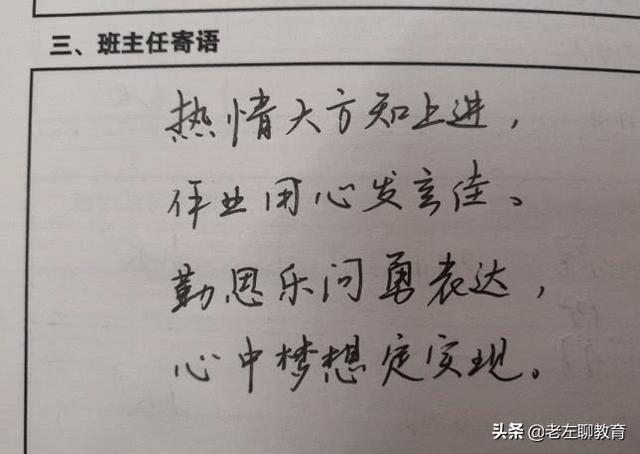 三、班主任寄语
热情大方知上进，
作业用心发言佳。
勤思乐问勇表达，
心中梦想定实现。
头条 @老左聊教育